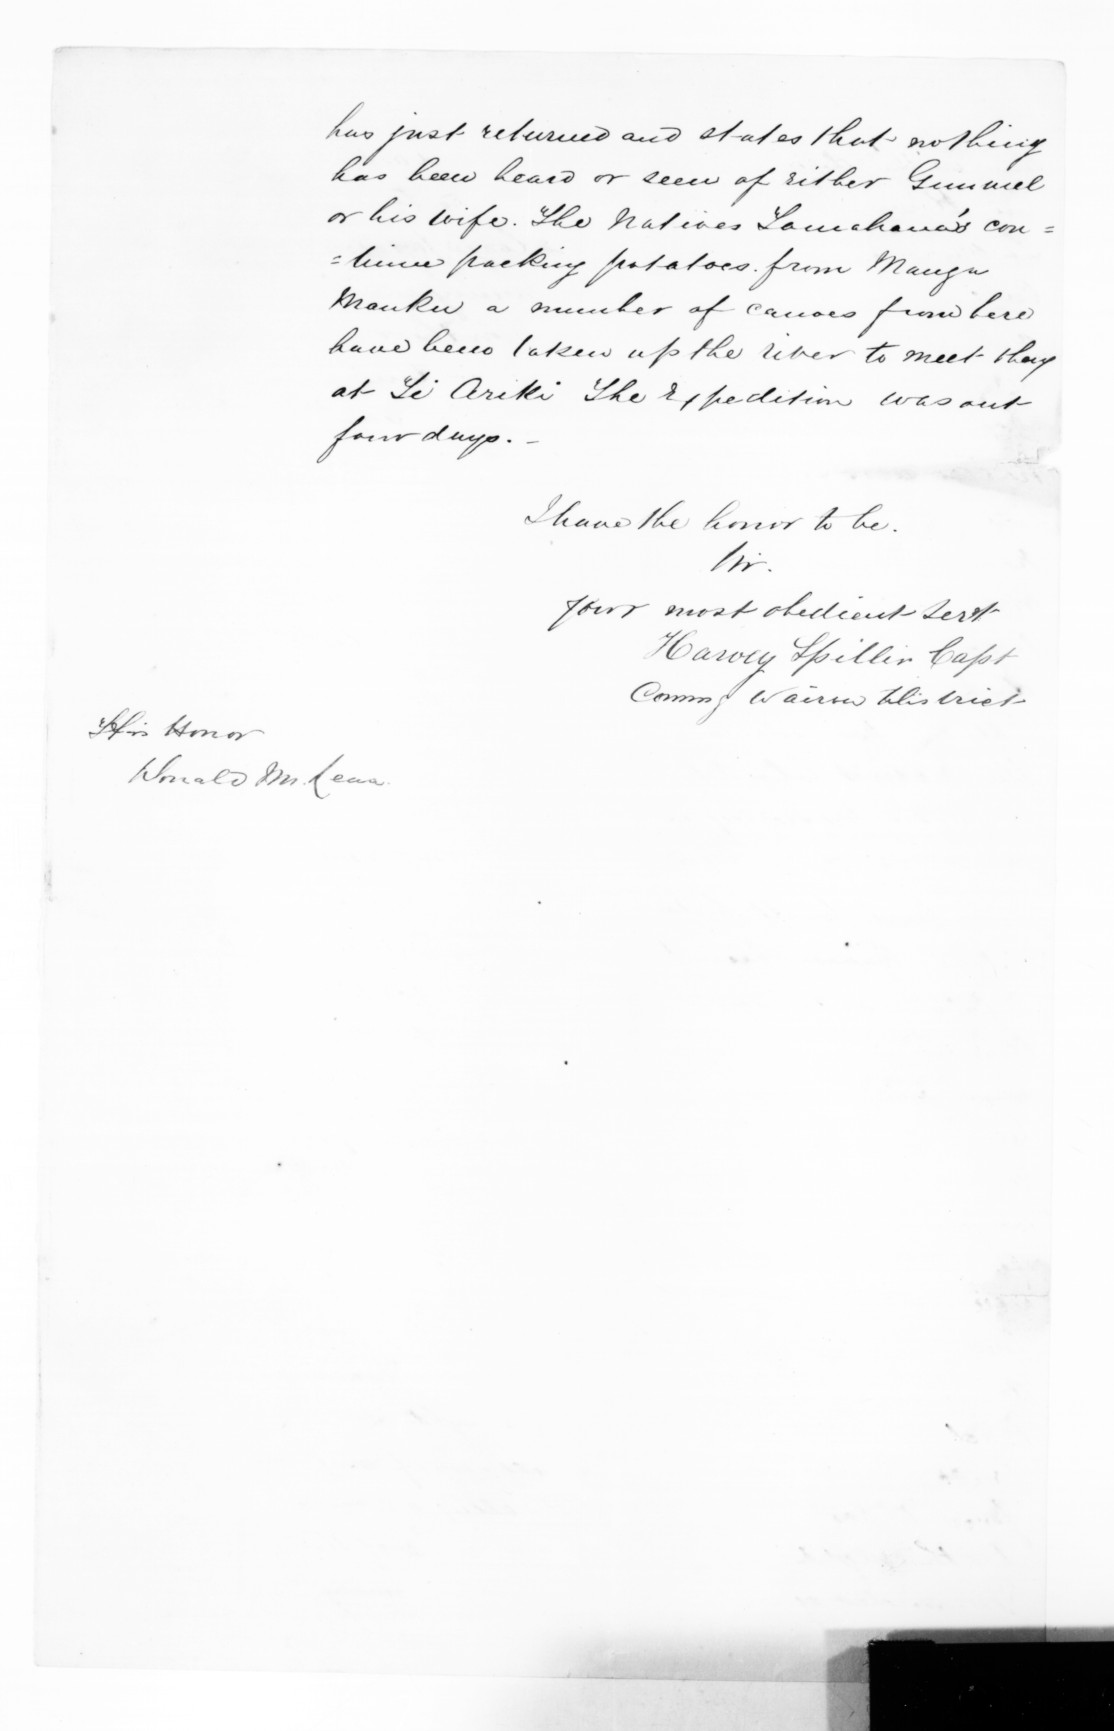 has just returned and states that nothing
has been heard or seen of either Gummel
or his wife. The Natives Tamahana's con=
=tinue packing potatoes. from Maunga
Manku a number of canoes from here
have been taken up the river to meet they
at Te Ariki The Expedition was out
four days. -
I have the honor to be.
Sir.
Your most obedient Servt
Harvey Spiller Capt
Commg Wairoa District
His Honor
Donald McLean